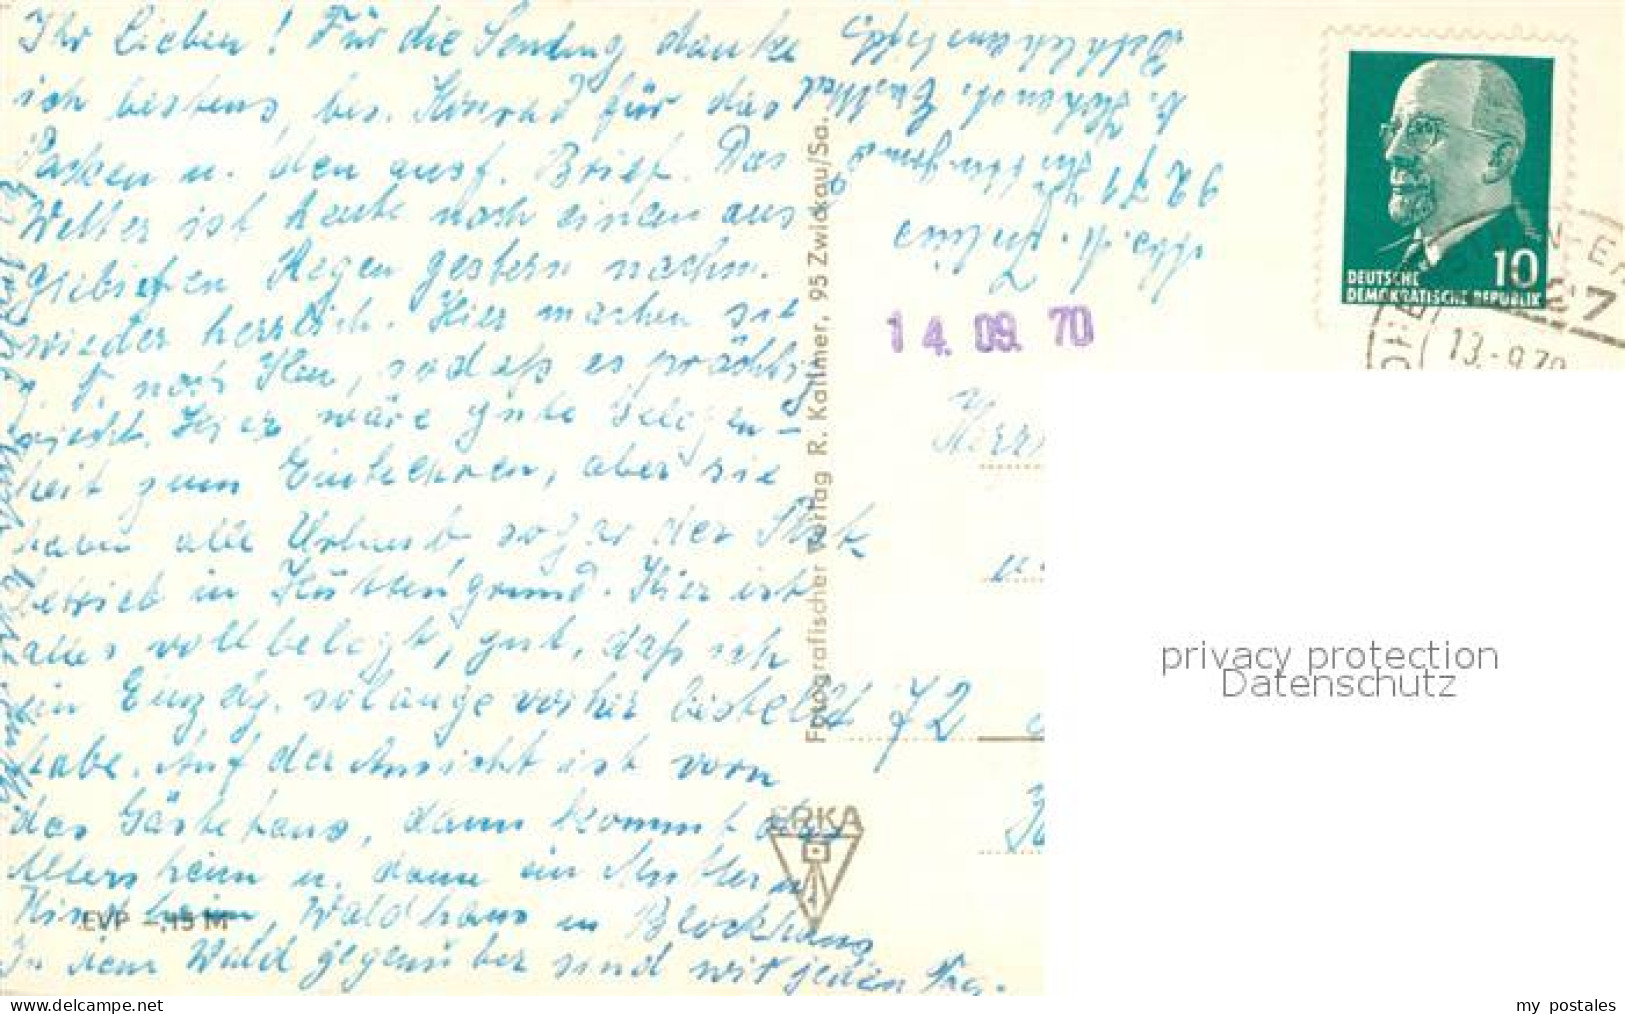 Ihr Lieben! Für die Sendung danke
ich bestens, bes. Konrad für das
Packen u. den ausf. Brief. Das
Wetter ist heute nach einem aus
giebigen Regen gestern nachm.
wieder herrlich. Hier machen sie
z. T. noch Heu, sodaß es prächtig
riecht. Hier wäre gute Gelegen-
heit zum Einkehren, aber sie
haben alle Urlaub sogar der
betrieb in Hüttengrund. Hier ist
alles voll belegt, gut, daß ich
ein Einzelzg. solange vorher bestellt
habe. Auf der Ansicht ist vorn
das Gästehaus, dann kommt das
Altersheim u. dann ein Mütter u
Kinderheim, Waldhaus in Blockhaus
In dem Wald gegenüber sind wir jeden Tag.
9271
14. 09. 70
Herrn
u.
72
Fotografischer Verlag R. Kallmer, 95 Zwickau/Sa.
ERKA
EVP -,15 M
DEUTSCHE
DEMOKRATISCHE REPUBLIK
10
13.-9.70
privacy protection
Datenschutz
my postales
www.delcampe.net